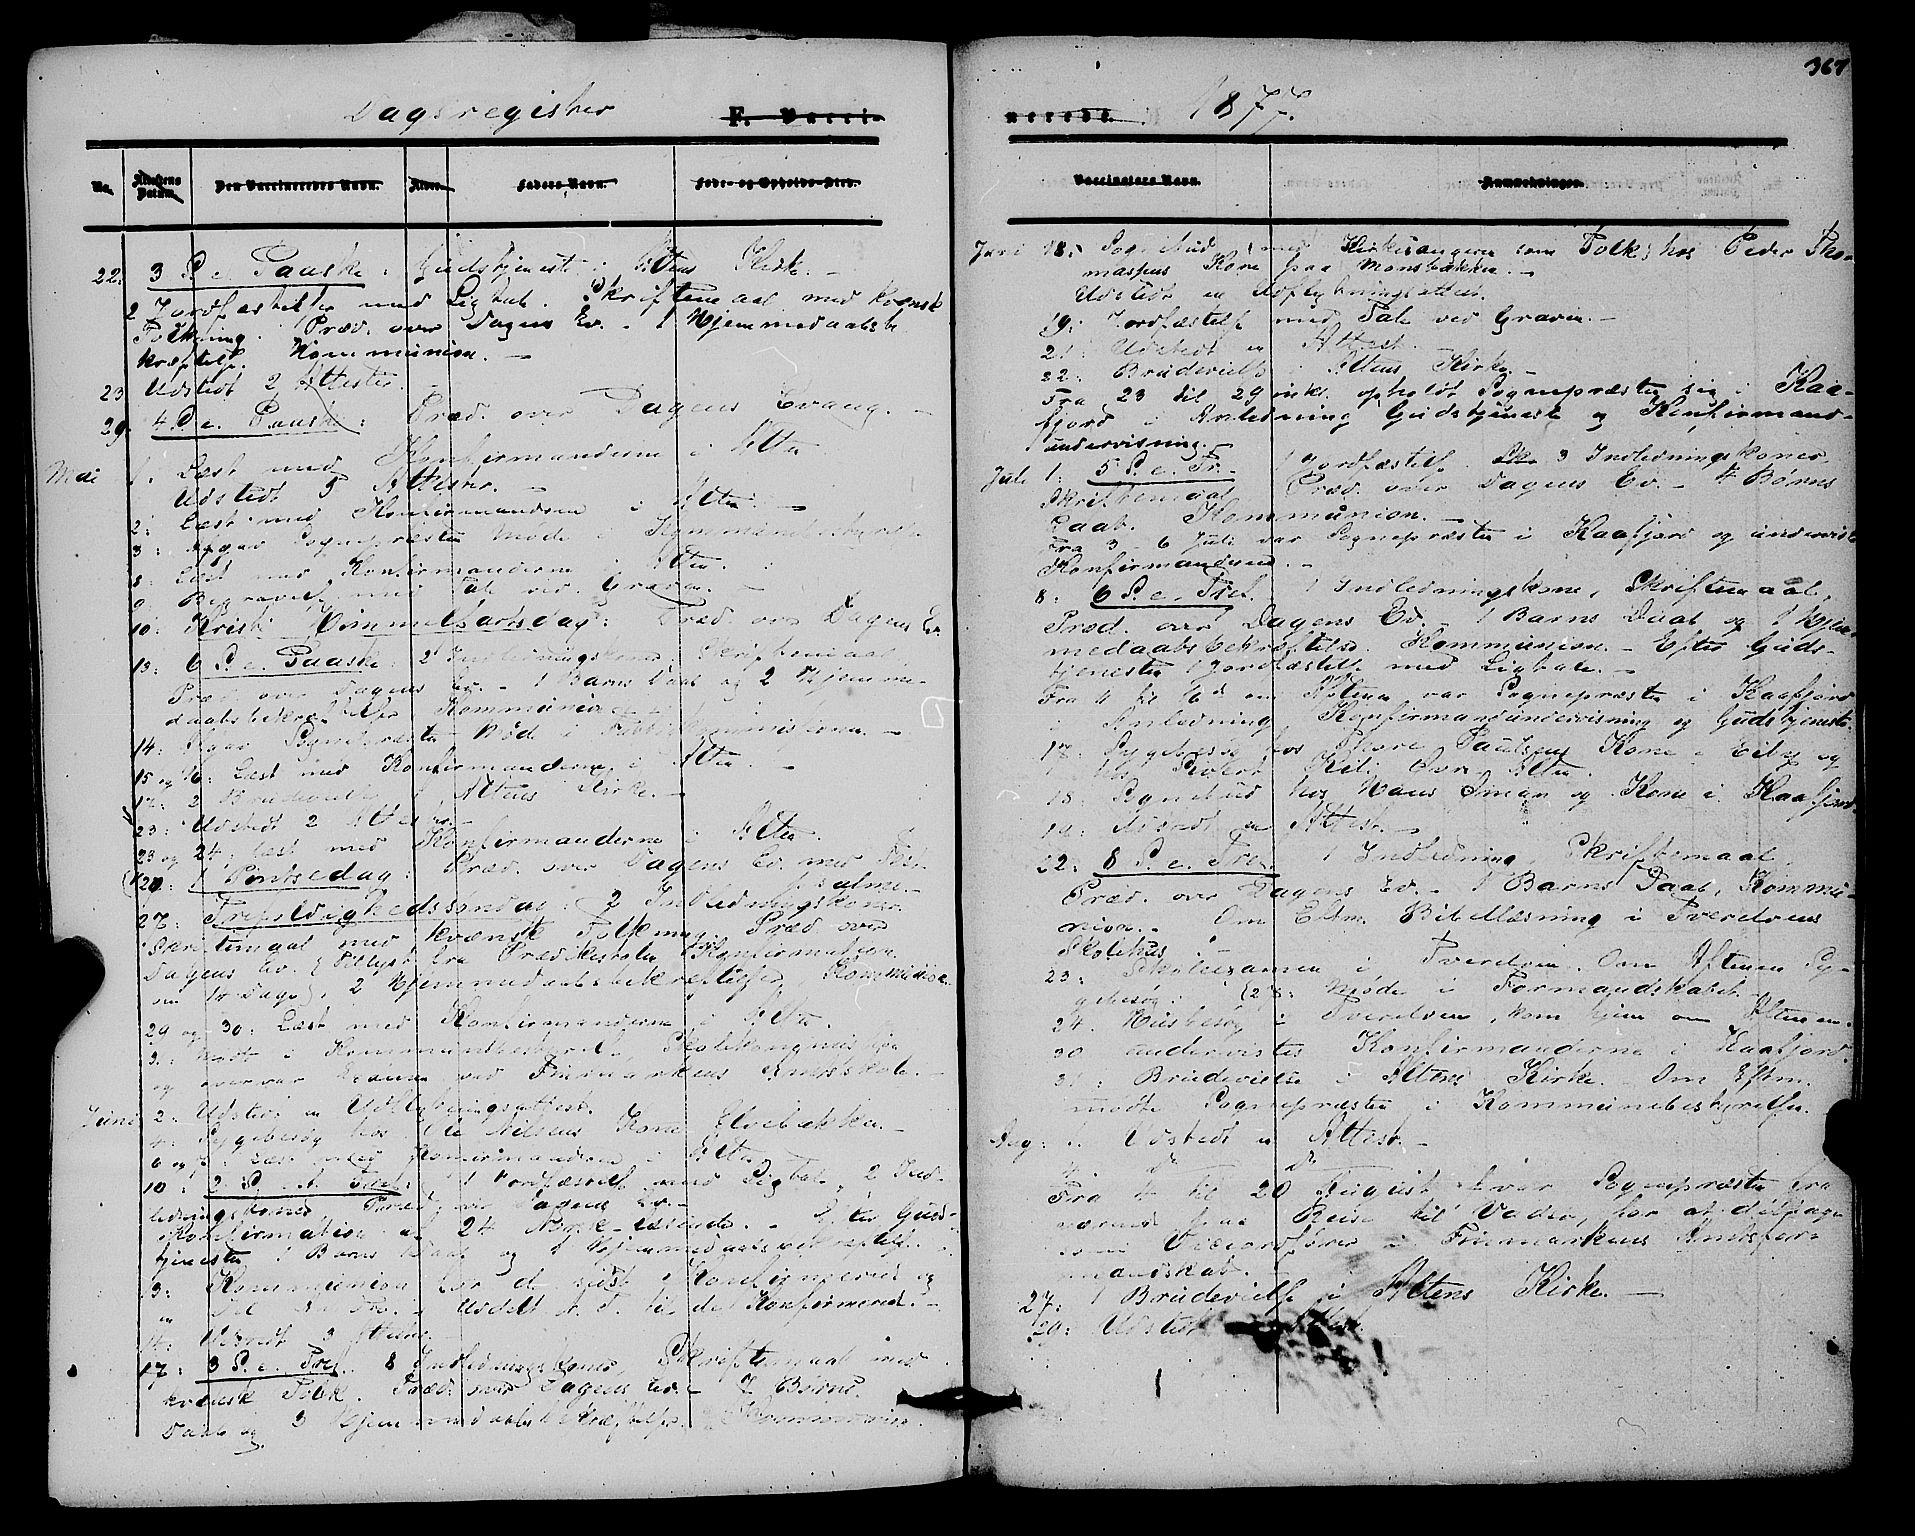 Dagsregister
F. Vacci-
No.
Attestens Datum.
Den Vaccineredes Navn.
Alder.
Faders Navn.
Føde- og Opholds-Sted.
22. 3 S. e. Paaske: Gudstjeneste i Altens Kirke. -
2 Jordfæstelser med Ligtale. Skriftemaal med kvænsk
Tolkning. Præd. over Dagens Ev. - 1 Hjemmedaabsbe
kræftelse. Kommunion. -
23 Udstedt 2 Attester.
29. 4 S. e. Paaske: Præd. over Dagens Evang. -
Mai 1. Læst med Konfirmanderne i Alten
Udstedt 5 Attester. -
2: Læst med Konfirmanderne i Alten. -
3: Sognepræsten Møde i Kommunebestyrelse
8: Læst med Konfirmanderne i Alten.
9 Begravelse med Tale ved Graven. -
10: Kristi Himmelfartsdag: Præd. over Dagens Ev.
13: 6 S. e. Paaske: 2 Indledningskoner. Skriftemaal
Præd. over Dagens Ev. - 1 Barns Daab og 2 Hjemme-
daabsbekræftelser Kommunion -
14: Sognepræsten Møde i
15 og 16: Læst med Konfirmanderne i Alten. -
17: 2 Brudevielser i Altens Kirke. -
23: Udstedt 2 Attester. -
23 og 24: Læst med Konfirmanderne i Alten.
(20: 1 Pintsedag: Præd. over Dagens Ev. med Fest-
salme. -
27: Trefoldighedssøndag: 2 Indledningskoner.
Skriftemaal med kvænsk Tolkning. Præd. over
Dagens Ev. (Tillyst fra Prædikestolen Konfirmation
om 14 Dage). 2 Hjemmedaabsbekræftelser, Kommunion.
29 og 30: Læst med Konfirmanderne i Alten.
og overvar ved Finmarkens Amtsskole. -
Juni 2: Udstedt en Udflytningsattest.
Sygebesøg hos Ole Nilsens Kone Elvebakken. -
6 og 7: Læst med Konfirmanderne i Alten
10: 2 S. e. Tref.: 1 Jordfæstelse med Ligtale, 2 Ind-
ledningskoner, Præd. over Dagens Ev. -
Konfirmation af 24 Norsk-læsende. - Efter Guds-
tjenesten 1 Barns Daab og 1 Hjemmedaabsbekræftelse.
13: Kommunion for de sidst Konfirmerede og
Udstedt 3 Attester
17: 3 S. e. Tref. 8 Indledningskoner, Skriftemaal med
kvænsk Tolk. Præd. over Dagens Ev. - 7 Børns
Daab og 3 Hjemmedaabsbekræftelser. Kommunion.
367
nerede.
1877.
Vaccinators Navn.
Anmærkninger.
Juni 18: Sognebud (med Kirkesangeren som Tolk) hos Peder Tho-
massens Kone paa Monsbakken. -
Udstedt en Udflytningsattest.
19: Jordfæstelse med Tale ved Graven. -
21: Udstedt en Attest. -
22. Brudevielse i Altens Kirke. -
Fra 23 til 29 inkl. opholdt Sognepræsten sig i Kaa-
fjord i Anledning Gudstjeneste og Konfirmand-
undervisning. -
Juli 1: 5 S. e. Tr. 1 Jordfæstelse. 3 Indledningskoner,
Skriftemaal, Præd. over Dagens Ev. - 4 Børns
Daab. Kommunion. -
Fra 3 - 6 Juli var Sognepræsten i Kaafjord og underviste
Konfirmanderne. -
8. 6 S. e. Tref. 1 Indledningskone, Skriftemaal,
Præd. over Dagens Ev. - 1 Barns Daab og 1 Hjem-
medaabsbekræftelse. Kommunion. - Efter Guds-
tjenesten 1 Jordfæstelse med Ligtale. -
var Sognepræsten i Kaafjord
i Anledning Konfirmandundervisning og Gudstjeneste.
17. Sygebesøg hos Paulsens Kone i Eiby og
hos Alten.
18. Sognebud hos Hans og Kone i Kaafjord
19. Udstedt en Attest. -
22: 8 S. e. Tref. 1 Indledning, Skriftemaal,
Præd. over Dagens Ev. - 1 Barns Daab, Kommu-
nion. - Om Eftm. Bibellæsning i Tverelvens
Skolehus. -
23: Skoleexamen i Tverelven. Om Aftenen Sy-
gebesøg. (23: Møde i Formandskabet. -
24 Husbesøg i Tverelven, kom hjem om Aftenen.
30 undervistes Konfirmanderne i Kaafjord.
31: Brudevielse i Altens Kirke. Om Eftm.
mødte Sognepræsten i Kommunebestyrelsen.
Aug: 1. Udstedt en Attest. -
Fra 4 til 20 August var Sognepræsten fra
værende paa Reise til Vadsø, for at deltage
som Viceordfører i Finmarkens Amtsfor-
mandskab. -
27: 1 Brudevielse i Altens Kirke. -
29: Udstedt